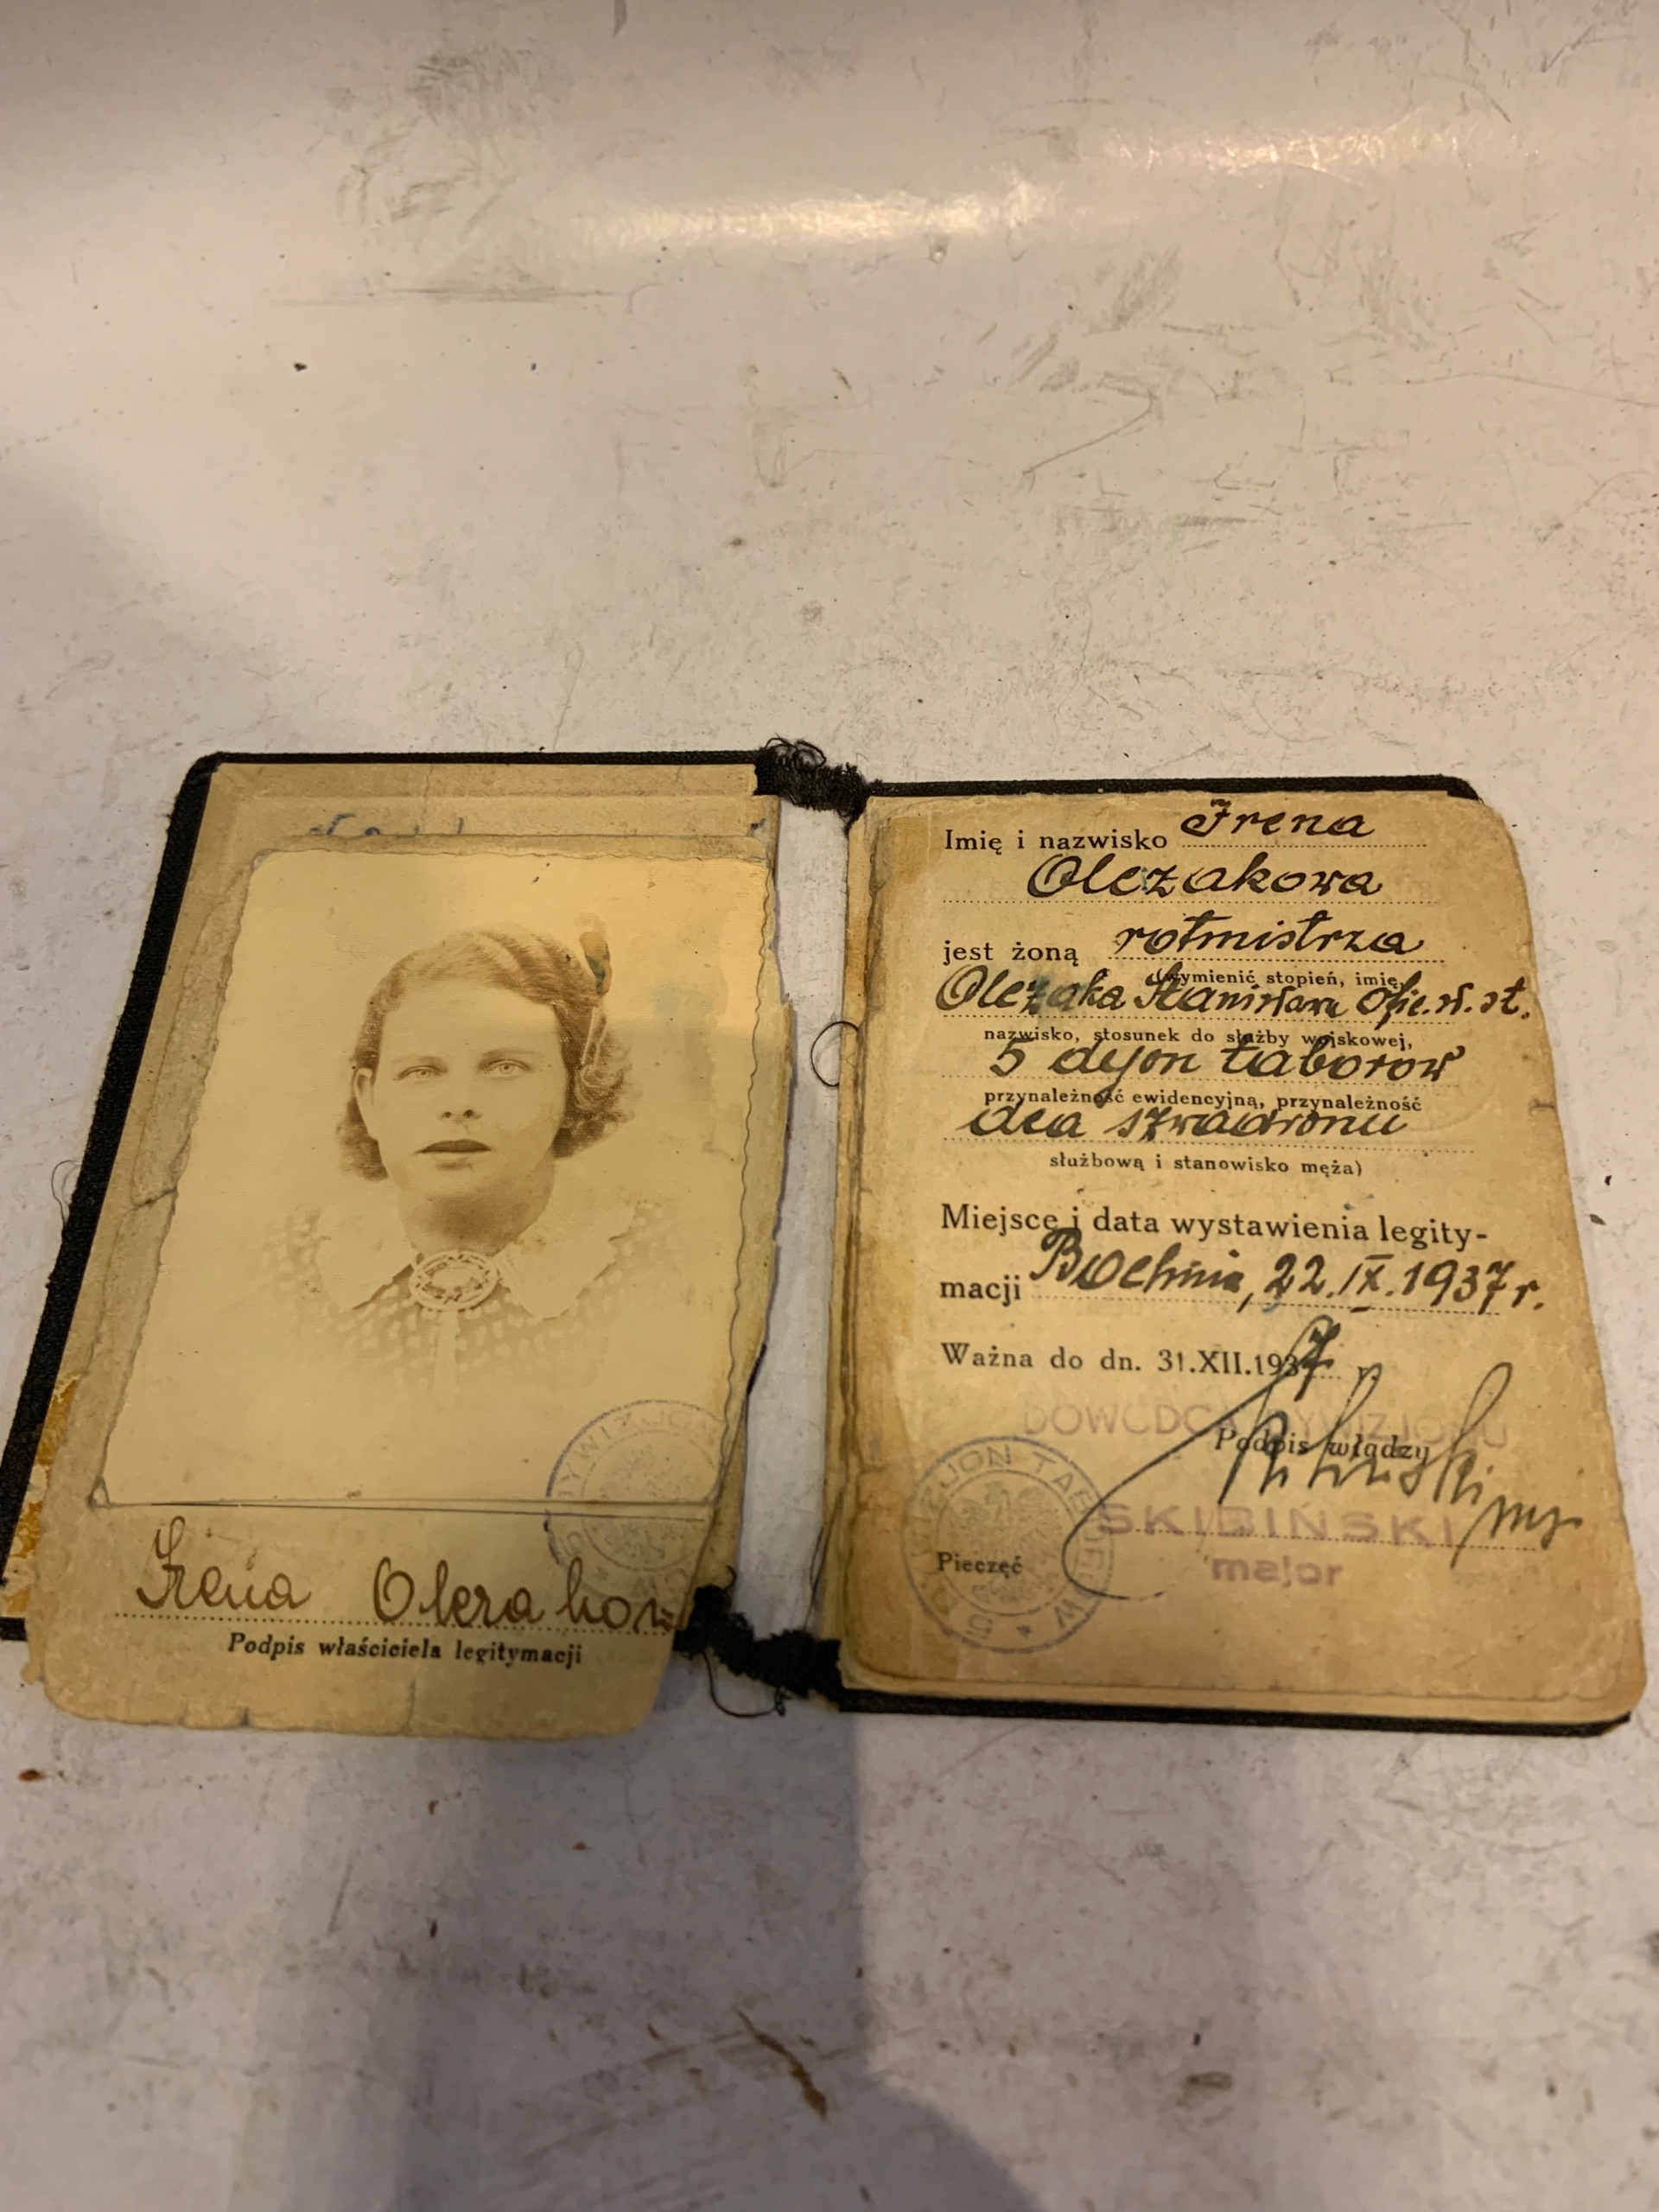 Irena Olczakow
Podpis właściciela legitymacji
Imię i nazwisko Irena
Olczakowa
jest żoną rotmistrza
(wymienić stopień, imię,
Olczaka Stanisława ofic. w. st.
nazwisko, stosunek do służby wojskowej,
5 dyon taborów
przynależność ewidencyjną, przynależność
dca szwadronu
służbową i stanowisko męża)
Miejsce i data wystawienia legity-
macji Bochnia, 22.IX.1937 r.
Ważna do dn. 31.XII.1937 r.
DOWÓDCA DYWIZJONU
Podpis władzy
SKIBIŃSKI
major
Pieczęć
5 DYWIZJON TABORÓW